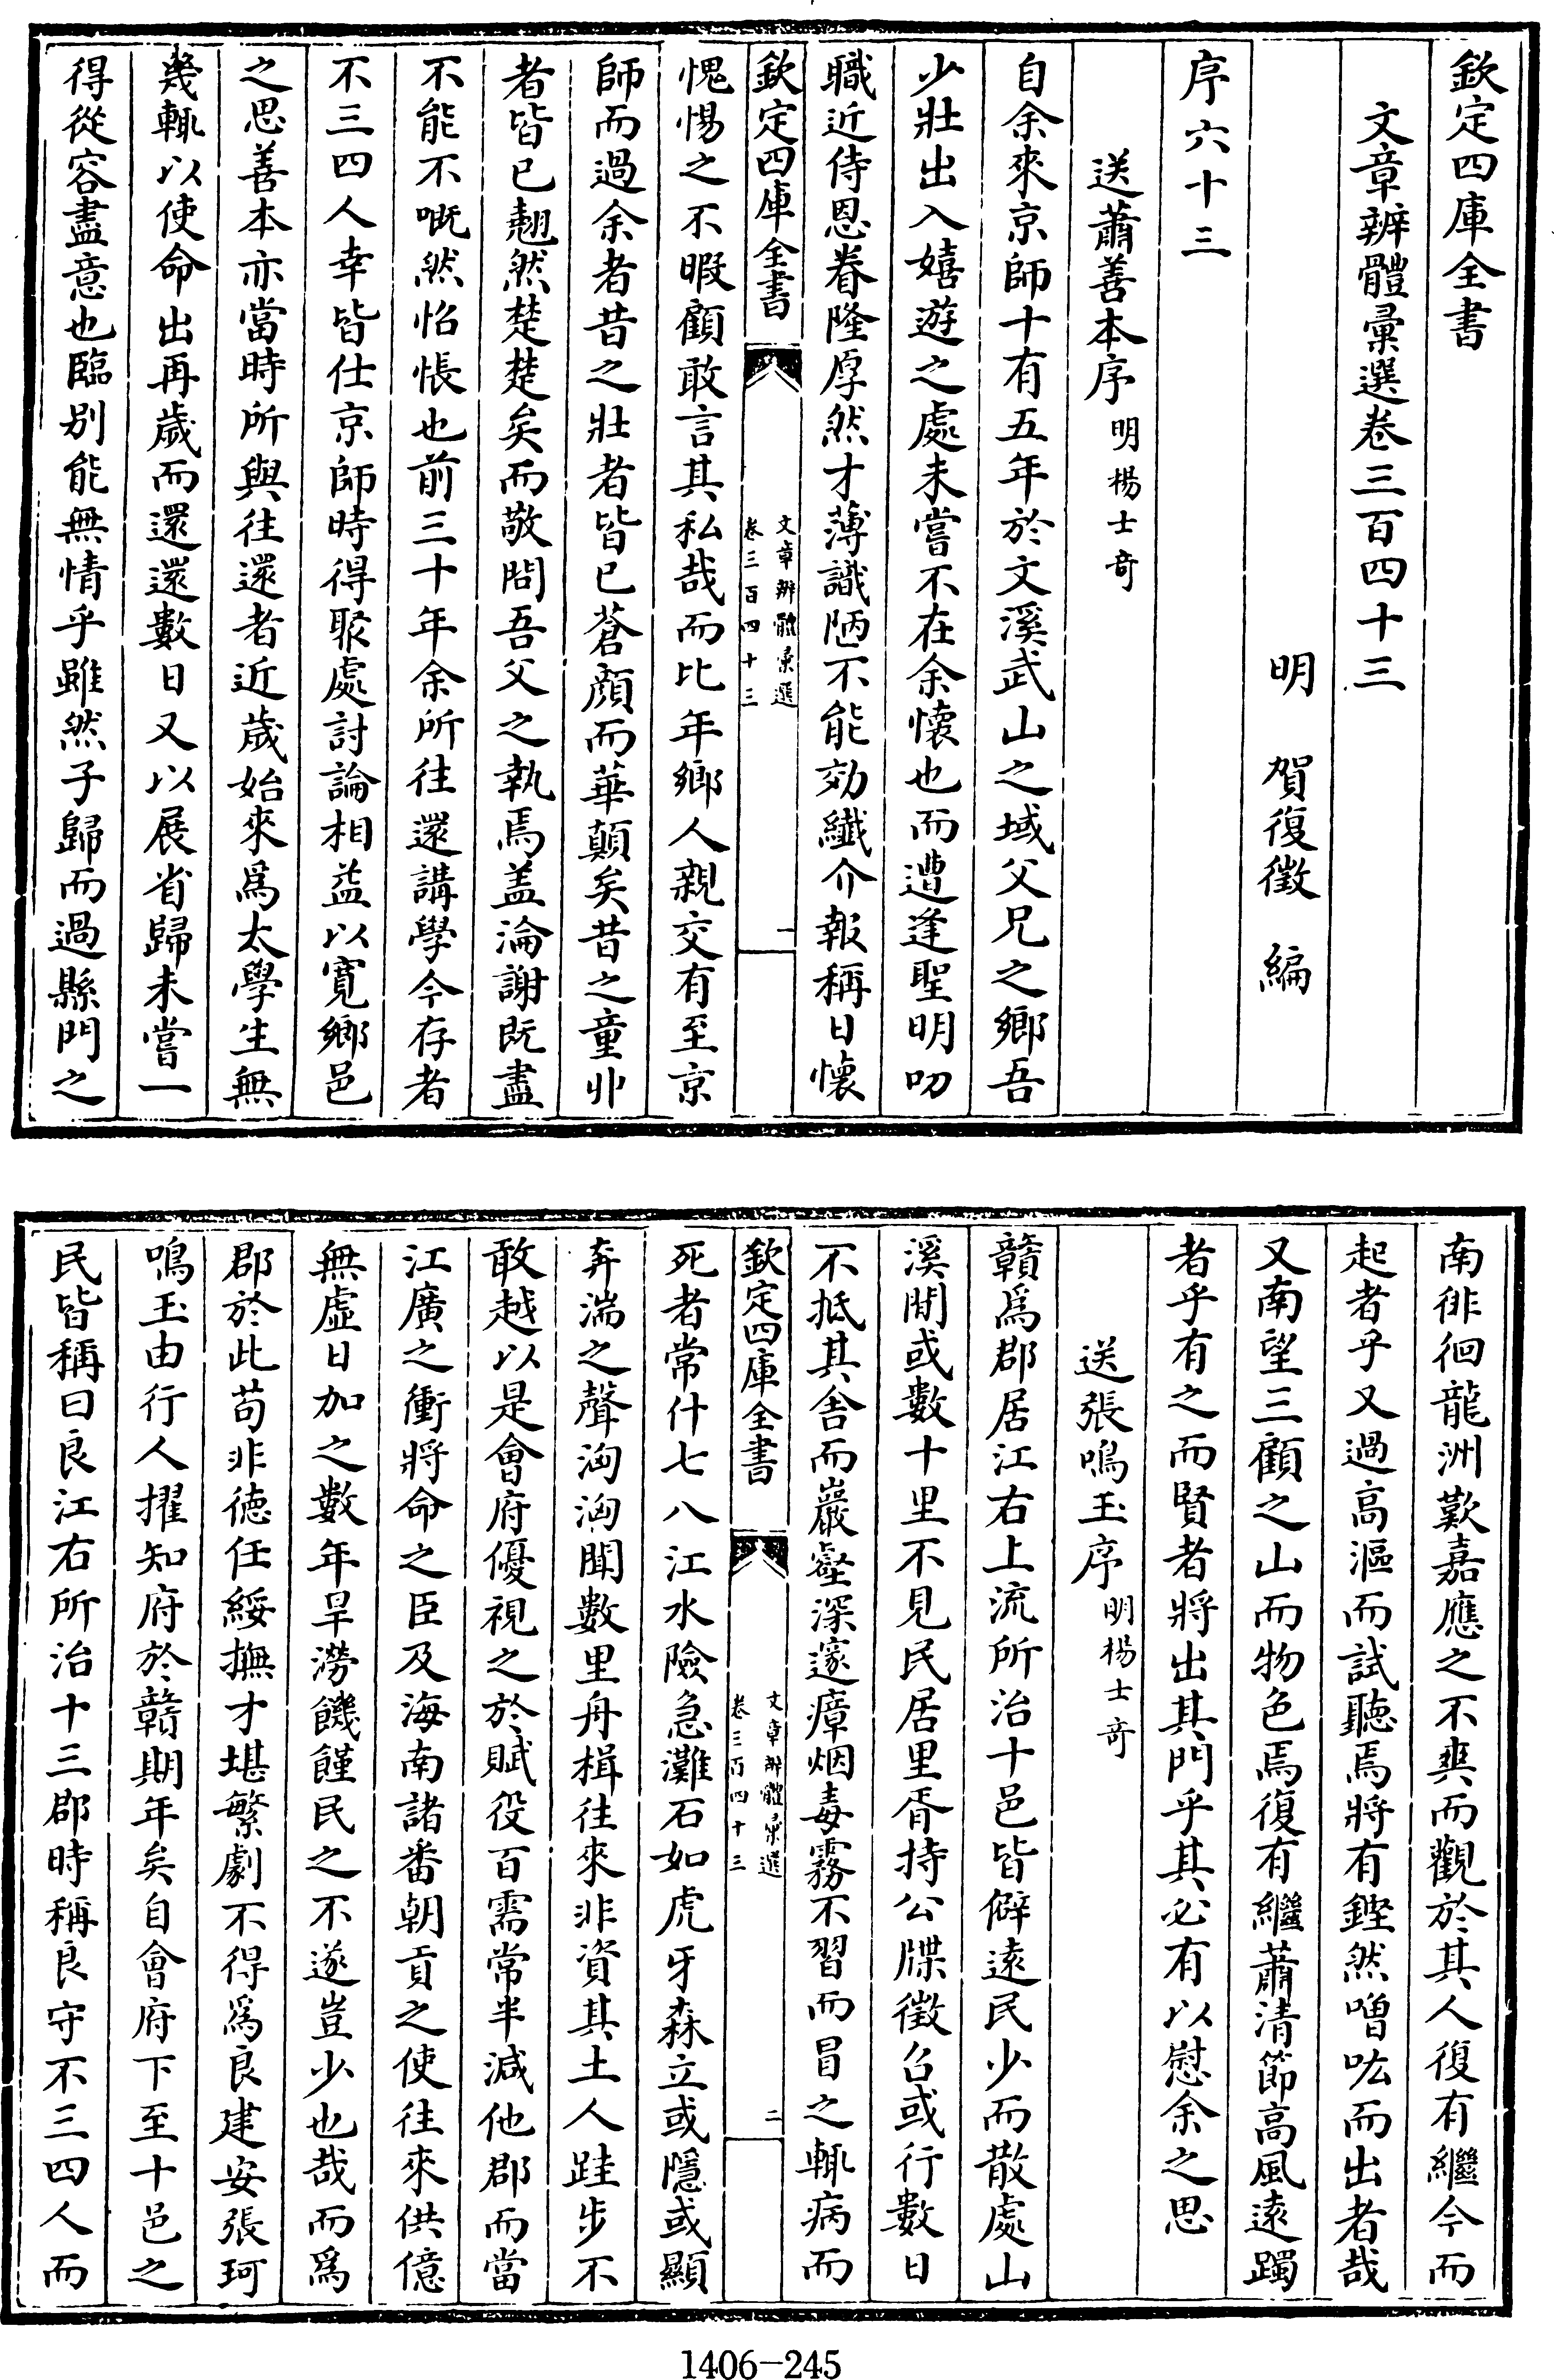 欽定四庫全書
文章辨體彙選卷三百四十三
明　賀復徵　編
序六十三
送蕭善本序明楊士奇
自余來京師十有五年於文溪武山之域父兄之鄉吾
少壯出入嬉遊之處未嘗不在余懷也而遭逢聖明叨
職近侍恩眷隆厚然才薄識陋不能効纖介報稱日懷
欽定四庫全書
文章辨體彙選
卷三百四十三
一
愧惕之不暇顧敢言其私哉而比年鄉人親交有至京
師而過余者昔之壯者皆已蒼顔而華顛矣昔之童丱
者皆已翹然楚楚矣而敬問吾父之執焉盖淪謝既盡
不能不嘅然怊悵也前三十年余所往還講學今存者
不三四人幸皆仕京師時得聚處討論相益以寛鄉邑
之思善本亦當時所與往還者近歲始來爲太學生無
幾輒以使命出再歲而還還數日又以展省歸未嘗一
得從容盡意也臨别能無情乎雖然子歸而過縣門之
南徘徊龍洲歎嘉應之不爽而觀於其人復有繼今而
起者乎又過高漚而試聽焉將有鏗然噌吰而出者哉
又南望三顧之山而物色焉復有繼蕭清節高風逺躅
者乎有之而賢者將出其門乎其必有以慰余之思
送張鳴玉序明楊士竒
贛爲郡居江右上流所治十邑皆僻逺民少而散處山
溪閒或數十里不見民居里胥持公牒徵召或行數日
不抵其舍而巖壑深邃瘴烟毒霧不習而冒之輒病而
欽定四庫全書
文章辨體彙選
卷三百四十三
二
死者常什七八江水險急灘石如虎牙森立或隱或顯
奔湍之聲洶洶聞數里舟楫往來非資其土人跬步不
敢越以是會府優視之於賦役百需常半減他郡而當
江廣之衝將命之臣及海南諸番朝貢之使往來供億
無虛日加之數年旱澇饑饉民之不遂豈少也哉而爲
郡於此苟非德任綏撫才堪繁劇不得爲良建安張珂
鳴玉由行人擢知府於贛期年矣自會府下至十邑之
民皆稱曰良江右所治十三郡時稱良守不三四人而
1406-245